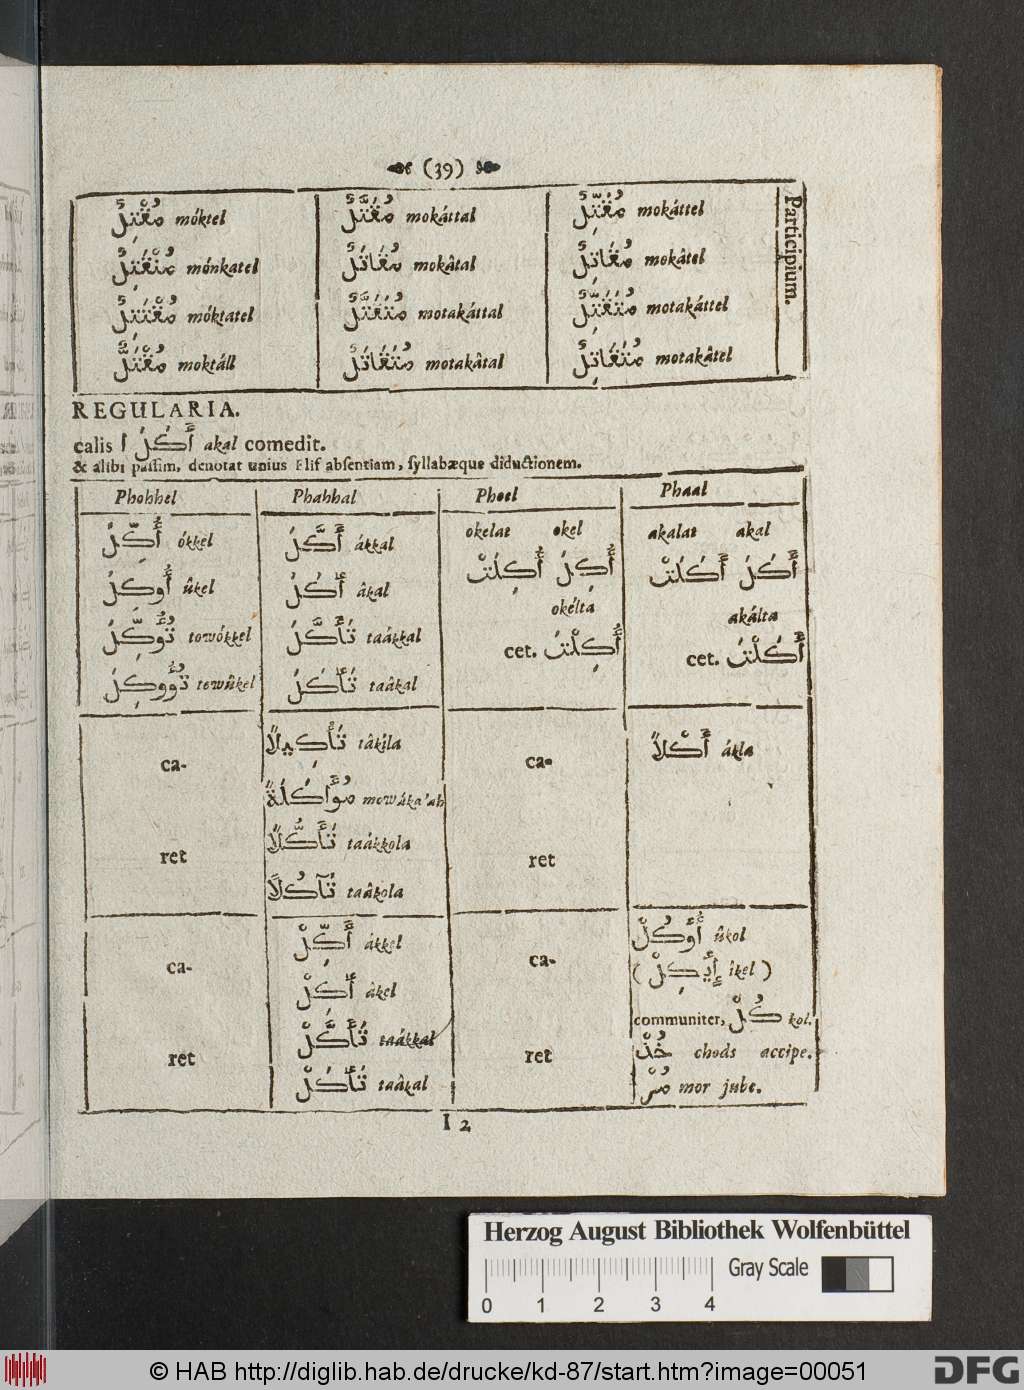 (39)
مُقْتِلٌ móktel مُقَتَّلٌ mokáttal مُقَتِّلٌ mokáttel Participium.
مُنْقَتِلٌ mónkatel مُقَاتَلٌ mokâtal مُقَاتِلٌ mokâtel
مُقْتَتِلٌ móktatel مُتَقَتَّلٌ motakáttal مُتَقَتِّلٌ motakáttel
مُقْتَلٌّ moktáll مُتَقَاتَلٌ motakâtal مُتَقَاتِلٌ motakâtel
REGULARIA.
calis ا أَكَلَ akal comedit.
& alibi passim, denotat unius Elif absentiam, syllabæque diductionem.
Phohhel Phahhal Phoel Phaal
أُكِّلَ ókkel أَكَّلَ ákkal okelat okel akalat akal
أُوكِلَ ûkel آكَلَ âkal أُكِلَ أُكِلَتْ أَكَلَ أَكَلَتْ
تُوُكِّلَ towókkel تَأَكَّلَ taákkal okélta akálta
تُوُوكِلَ towûkel تَآكَلَ taâkal cet. أُكِلْتَ cet. أَكَلْتَ
ca- تَأْكِيلًا tâkila ca- أَكْلًا ákla
مُوَأَكَلَةً
ret تَأَكُّلًا taákkola ret
تَآكُلًا taâkola
ca- أَكِّلْ ákkel ca- أُوكُلْ ûkol
آكِلْ âkel ( إِيكِلْ îkel )
ret تَأَكَّلْ taákkal ret communiter, كُلْ kol.
تَآكَلْ taâkal خُذْ chods accipe.
مُرْ mor jube.
I 2
Herzog August Bibliothek Wolfenbüttel
Gray Scale
0 1 2 3 4
© HAB http://diglib.hab.de/drucke/kd-87/start.htm?image=00051
DFG